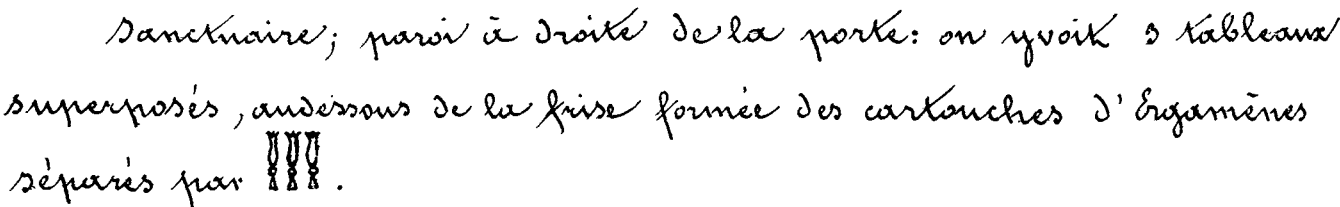 Sanctuaire; paroi à droite de la porte: on y voit 3 tableaux
superposés, audessous de la frise formée des cartouches d'Ergamènes
séparés par 𓋴𓋴𓋴.